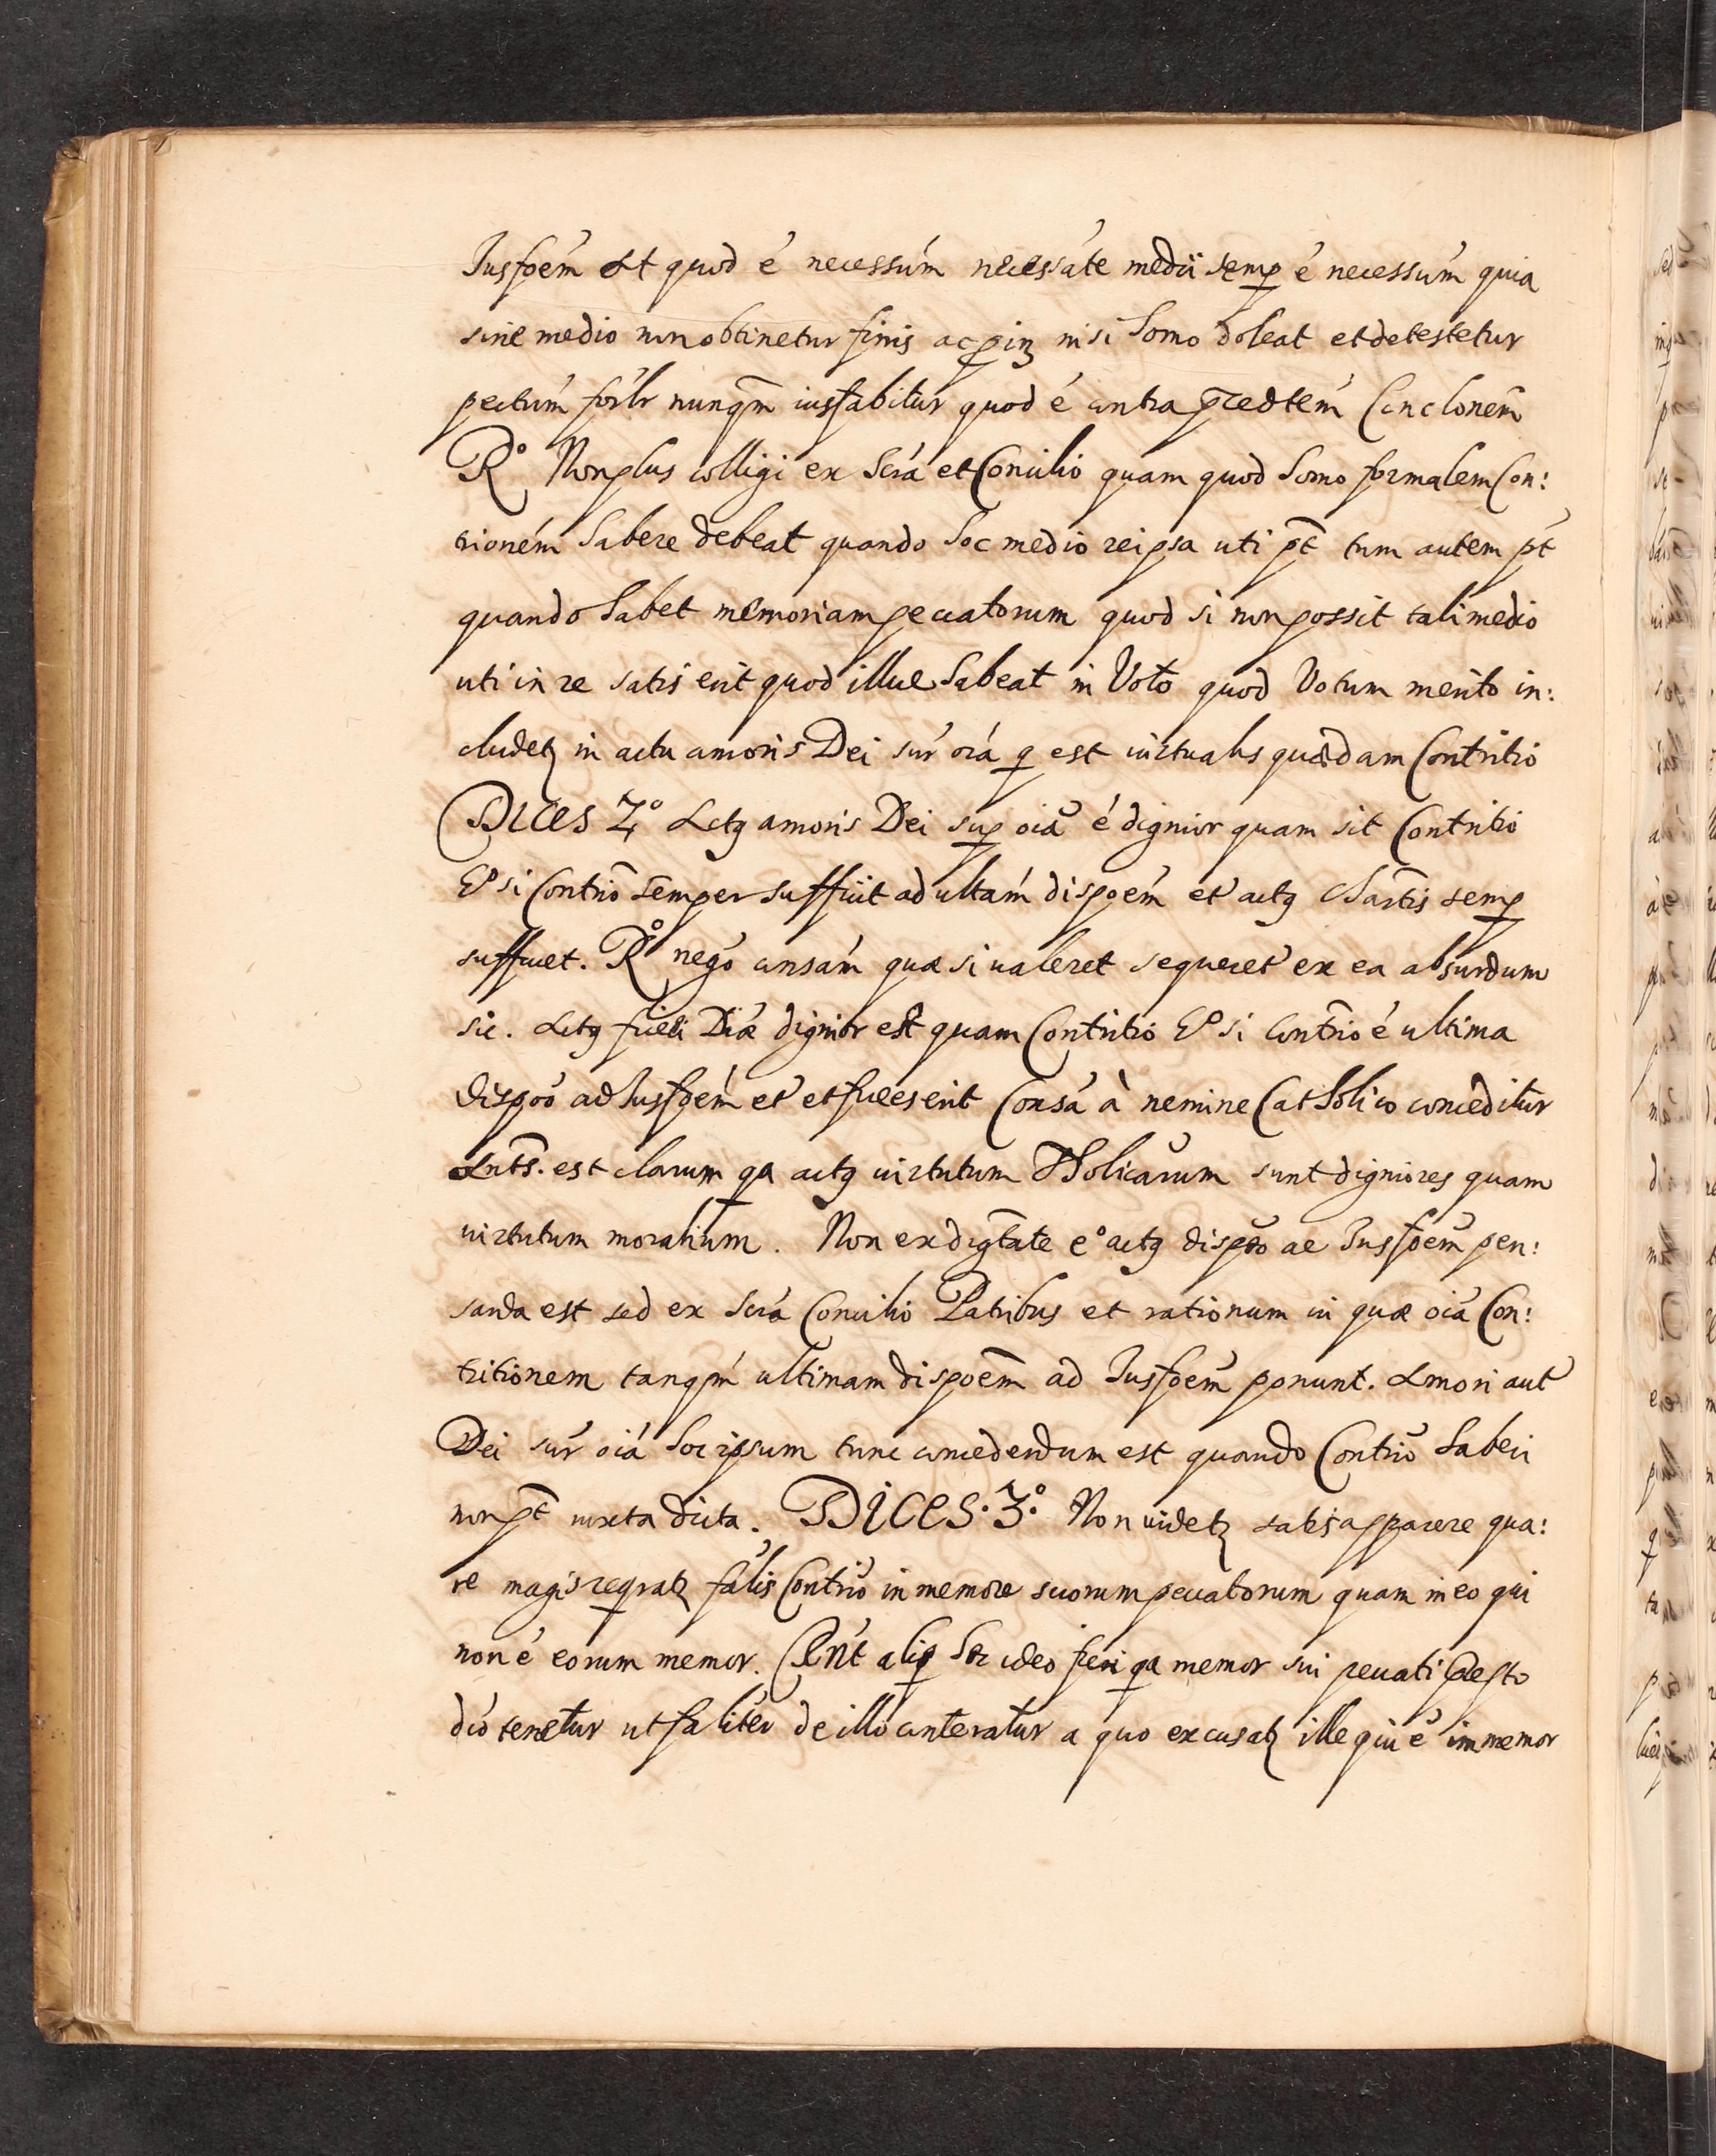 Jusfoém At quod é necessúm necessáte medii semp é necessúm quia
sine medio non obtinetur finis ac pin nisi homo doleat et detestetur
pectúm fórlr nunqm̃ iusfabitur quod é contra prædtém Conclonem̃
Rº Non plus colligi ex Scrá et Concilio quam quod homo formalem Con:
trioném habere debeat quando hoc medio reipsa uti pt̃ tum autem pt̃
quando habet memoriam peccatorum quod si non possit tali medio
uti in re satis erit quod illud habeat in Voto quod Votum merito in:
cludetz in actu amoris Dei sur̃ oiá q est uirtualis quædam Contritio
DICES 2º Actg amoris Dei sup oiã é dignior quam sit Contritio
Eº si Contriõ semper sufficit ad ultám dispoém et̃ actg Chartis̃ semp
sufficiet. Rº negó consám quæ si ualeret sequeret̃ ex ea absurdum
sic. Actg fidei Diæ dignior est quam Contritio Eº si contriõ é ultima
dispoõ ad Jusfoém et̃ et fides erit Consá à nemine Catholico conceditur
Ants̃. est clarum qa actg uirtutum Tholicarũm sunt digniores quam
uirtutum moralium. Non ex digtãte eº actg dispoõ ad Jusfoem̃ pen:
sanda est sed ex Scrá Concilio Patribus et rationum ui quæ oiá Con:
tritionem tanqm̃ ultimam dispoem̃ ad Jusfoem̃ ponunt. Amori aut̃
Dei sur̃ oiá hoc ipsum tunc concedendum est quando Contriõ haberi
non pt̃ iuxta dicta. DICES. 3º. Non uidetz satis apparere qua:
re magis requratz fális Contriõ in memore suorum peccatorum quam in eo qui
non é eorum memor. Cent̃ aliq hoc ideo fieri qa memor sui peccati præsto
dió tenetur ut faliter de illo conteratur a quo excusatz ille qui é immemor